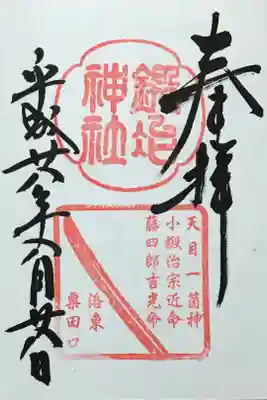 奉拝
鍛冶
神社
天目一箇神
小鍛治宗近命
藤四郎吉光命
洛東
粟田口
平成廿八年八月廿日